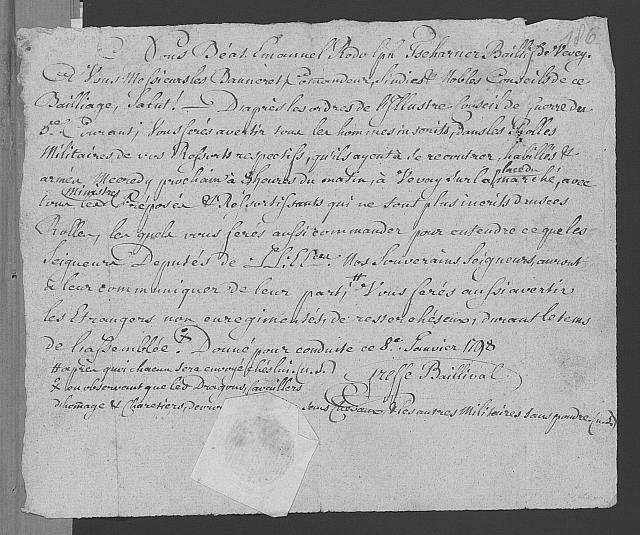 186
Nous Béat Emanuel Rodolph Tscharner Baillif de Vevey.
A Vous Messieurs les Banneret, Comandeur, Sindics & Nobles Conseils de ce
Bailliage, Salut! D'après les ordres de l'Illustre Conseil de Guerre du
5.e Courant, Vous ferés avertir tous les hommes inscrits, dans les Rolles
Militaires de vos Ressorts respectifs, qu'ils ayent à se rencontrer, habillés &
armés Mecredy prochain à 8 heures du matin, à Vevey sur la place du marché, avec
tous les Ministres Préposés & Ressortissants qui ne sont plus incrits dans ces
Rolles, les quels vous ferés aussi commander pour entendre ce que les
Seigneurs Deputés de LL. EE. Nos Souverains Seigneurs, auront
à leur communiquer de leur part; # Vous ferés aussi avertir
les Etrangers non enregimentés, de rester chés eux, durant le tems
de l'assemblée. Donné pour conduite ce 8.e Janvier 1798
# après quoi chacun sera envoyé chés lui (u.s.)
& en observant que les Dragons, Cavalliers
d'homage & Charetiers, devront sans Chevaux & les autres Militaires sans poudre (u.s.)
Greffe Baillival